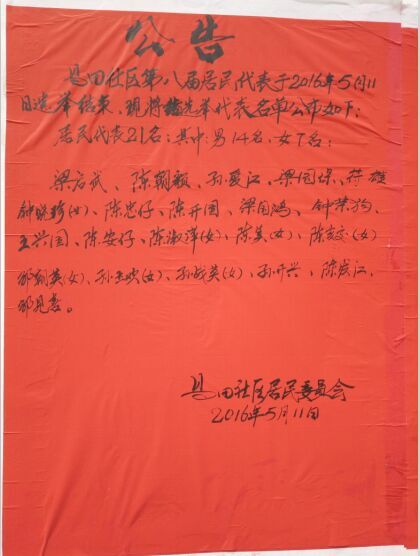 公告
昌田社区第八届居民代表于2016年5月11
日选举结束,现将选举代表名单公布如下:
居民代表21名;其中:男14名,女7名;
梁启武、陈朝毅、孙爱江、梁国保、蒋雄
钟晓珍(女)、陈忠仔、陈开国、梁国鸿、钟荣狗、
王兴国、陈安仔、陈淑萍(女)、陈英(女)、陈交(女)
邓朝英(女)、孙玉欢(女)、孙战英(女)、孙开兴、陈炭江、
邓见。
昌田社区居民委员会
2016年5月11日